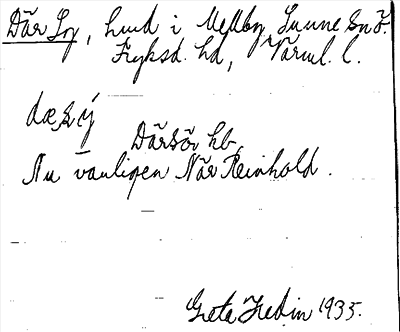 Där Sör, hmd i Mellby, Sunne sn Ö.
Fryksd. hd, Värml. l.
dæ, s ý
Därsör hb,
Nu vanligen När Reinhold.
Greta Hedin 1935.